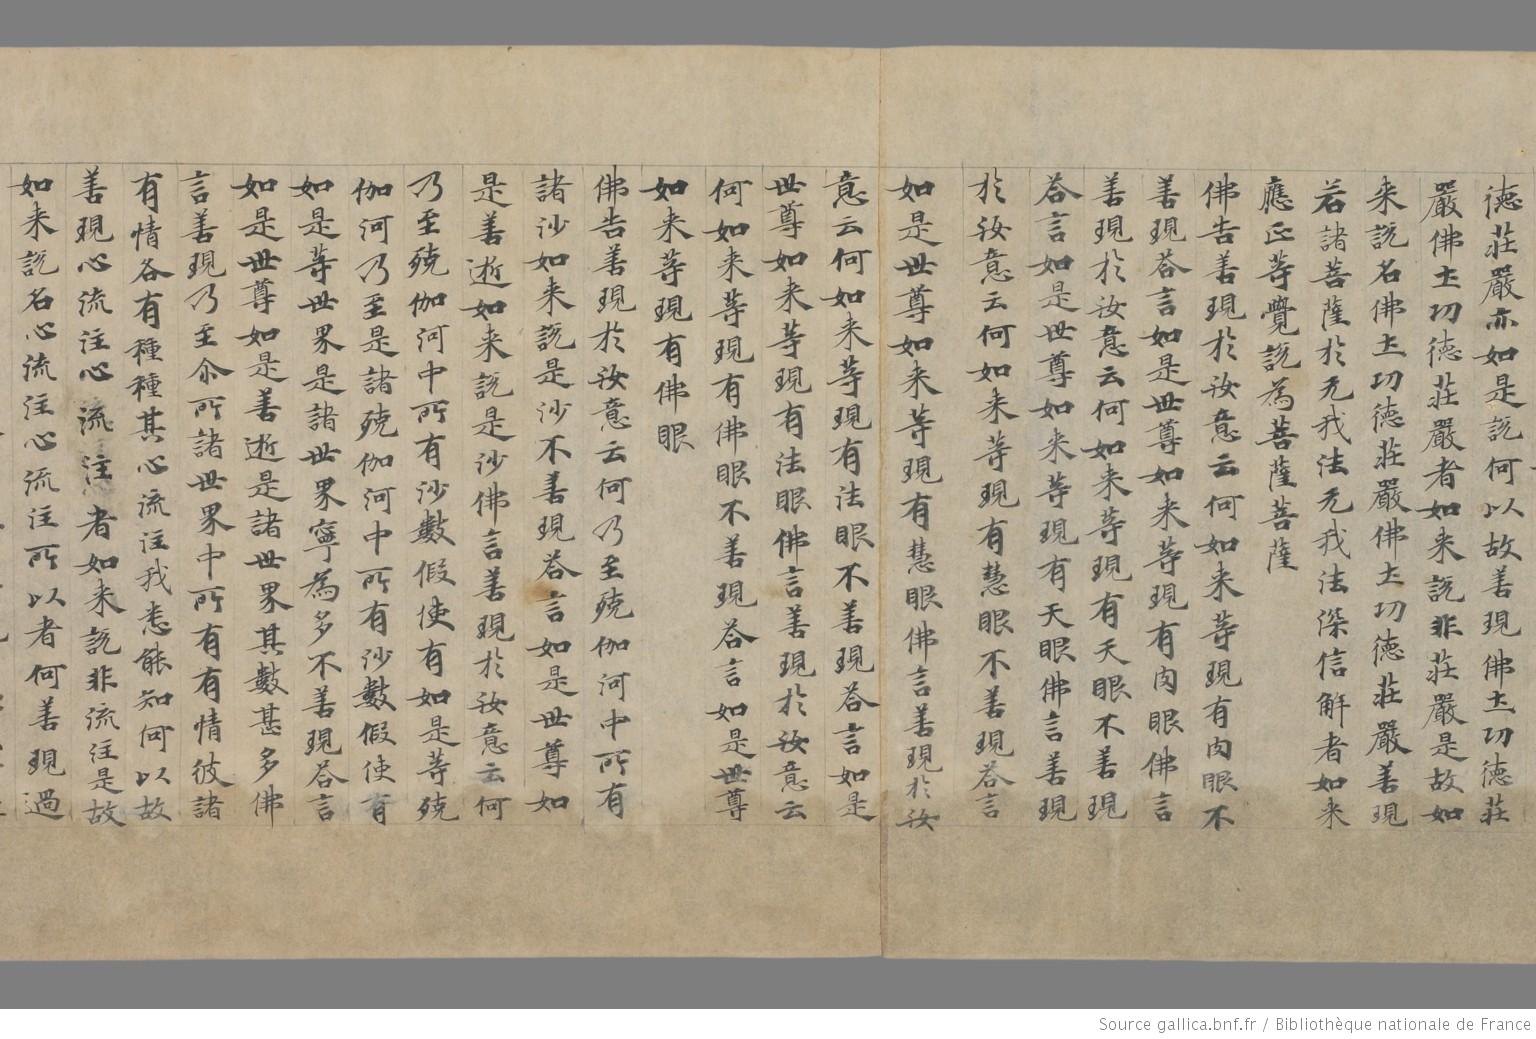 德莊嚴亦如是說何以故善現佛土功德莊
嚴佛土功德莊嚴者如来說非莊嚴是故如
来說名佛土功德莊嚴佛土功德莊嚴善現
若諸菩薩於无我法无我法深信解者如来
應正等覺說為菩薩菩薩
佛告善現於汝意云何如来等現有肉眼不
善現荅言如是世尊如来等現有肉眼佛言
善現於汝意云何如来等現有天眼不善現
荅言如是世尊如来等現有天眼佛言善現
於汝意云何如来等現有慧眼不善現荅言
如是世尊如来等現有慧眼佛言善現於汝
意云何如来等現有法眼不善現荅言如是
世尊如来等現有法眼佛言善現於汝意云
何如来等現有佛眼不善現荅言如是世尊
如来等現有佛眼
佛告善現於汝意云何乃至殑伽河中所有
諸沙如来說是沙不善現荅言如是世尊如
是善逝如来說是沙佛言善現於汝意云何
乃至殑伽河中所有沙數假使有如是等殑
伽河乃至是諸殑伽河中所有沙數假使有
如是等世界是諸世界寧為多不善現荅言
如是世尊如是善逝是諸世界其數甚多佛
言善現乃至尒所諸世界中所有有情彼諸
有情各有種種其心流注我悉能知何以故
善現心流注心流注者如来說非流注是故
如来說名心流注心流注所以者何善現過
Source gallica.bnf.fr / Bibliothèque nationale de France